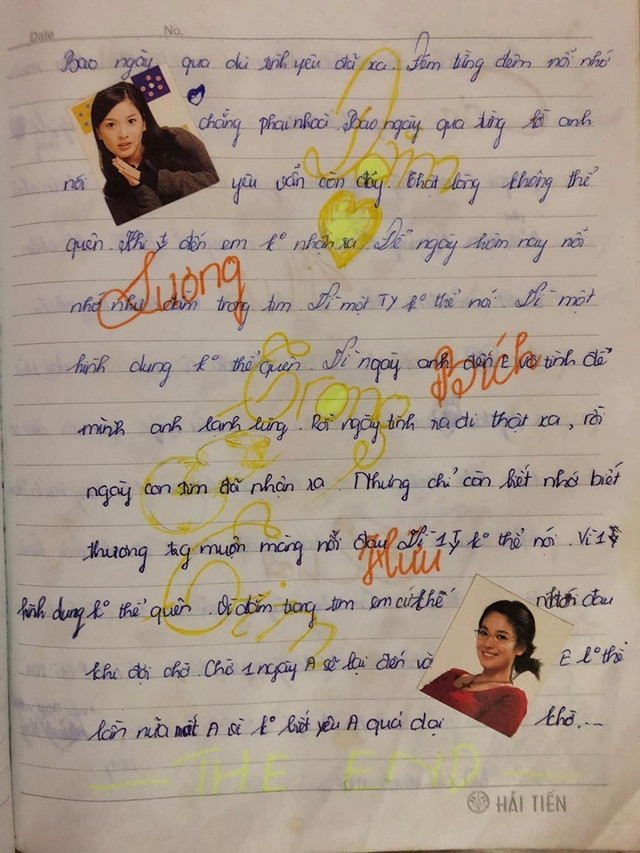 Date No.
Bao ngày qua dù tình yêu đã xa. Đêm từng đêm nỗi nhớ
chẳng phai nhoà. Bao ngày qua từng lời anh
nói yêu vẫn còn đấy. Thật lòng không thể
quên. Khi ty đến em k° nhận ra. Để ngày hôm nay nỗi
nhớ như dằm trong tim. Vì một TY k° thể nói. Vì một
hình dung k° thể quên. Vì ngày anh đến E vô tình để
mình anh lạnh lùng. Rồi ngày tình ra đi thật xa, rồi
ngày con tim đã nhận ra. Nhưng chỉ còn biết nhớ biết
thương tg muộn màng nỗi đau. Vì 1 ty k° thể nói. Vì 1
hình dung k° thể quên. Vì dằm trong tim em cứ thế nhói đau
khi đợi chờ. Chờ 1 ngày A sẽ lại đến và E k° thể
lần nữa mất A vì k° biết yêu A quá dại khờ...
Dằm
Trong
Tim
Lương
Bích
Hữu
THE END
HẢI TIẾN